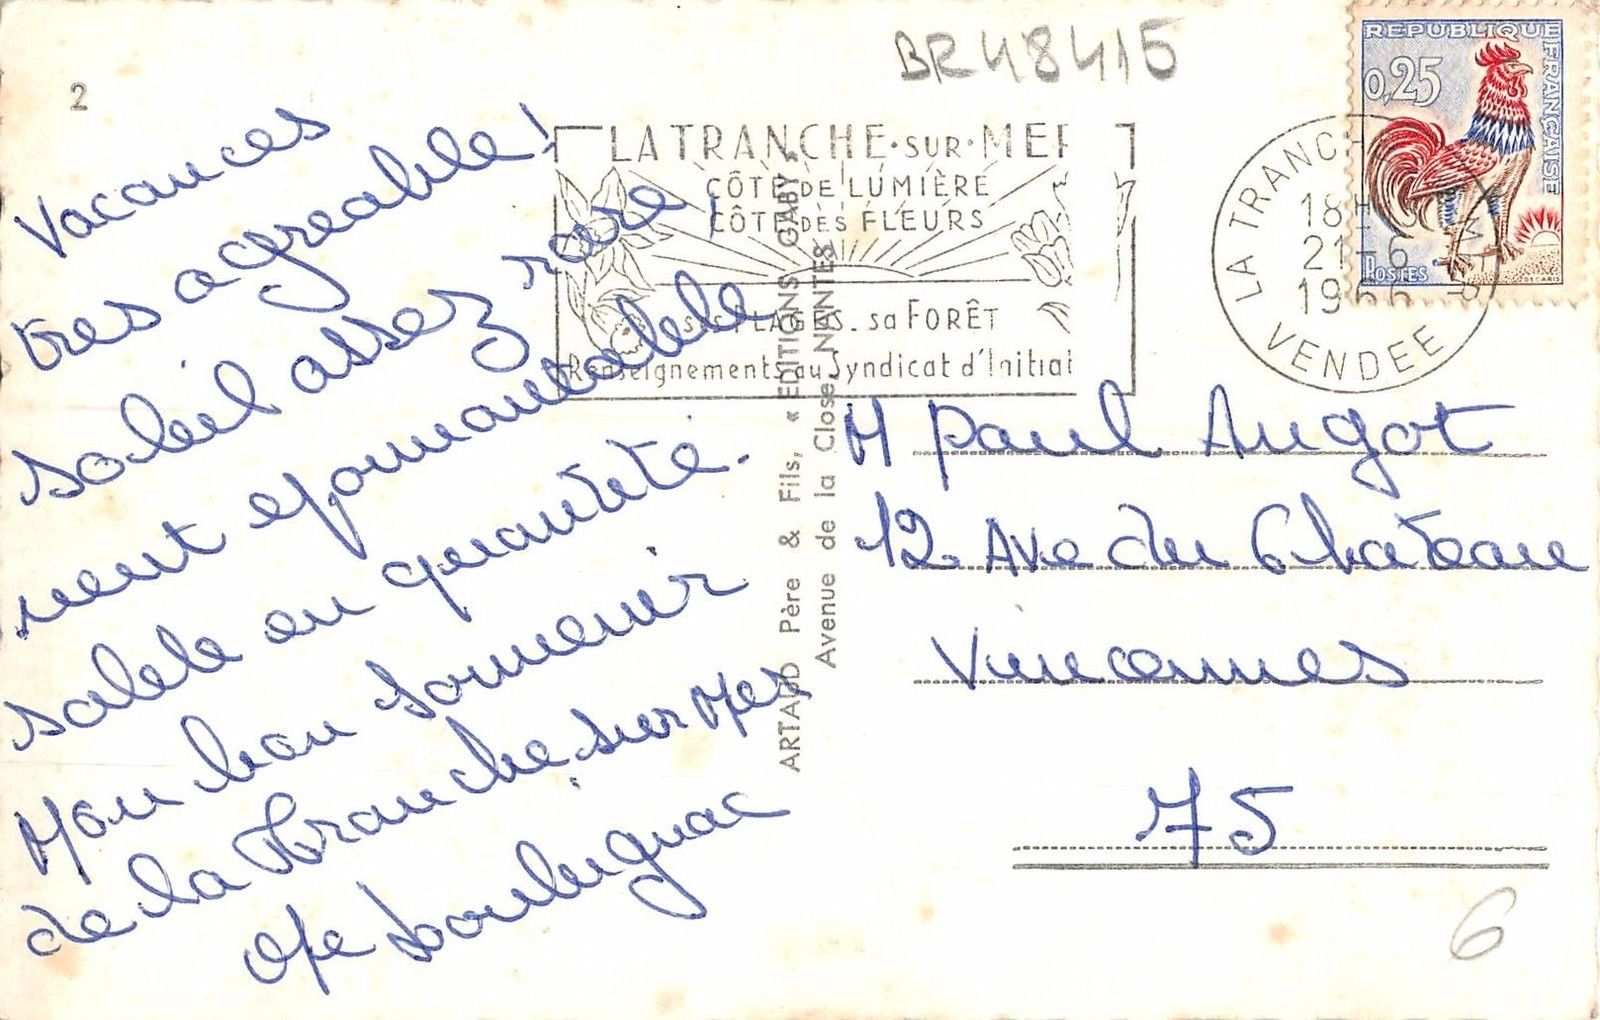 BR48415
2
Vacances
tres agreable!
soleil assez rare,
vent epouvantable
sable en quantité.
Mon bon souvenir
de la Tranche sur Mer
LA TRANCHE·SUR·MER
CÔTE DE LUMIÈRE
CÔTE DES FLEURS
SES PLAGES. sa FORÊT
Renseignements au Syndicat d'Initiat
ARTAUD Père & Fils, « EDITIONS GABY »
Avenue de la Close, NANTES
REPUBLIQUE FRANÇAISE
0,25
POSTES
LA TRANCHE
18H
21-6
1966
VENDEE
M Paul Augot
12 Ave du Chateau
Vincennes
75
6